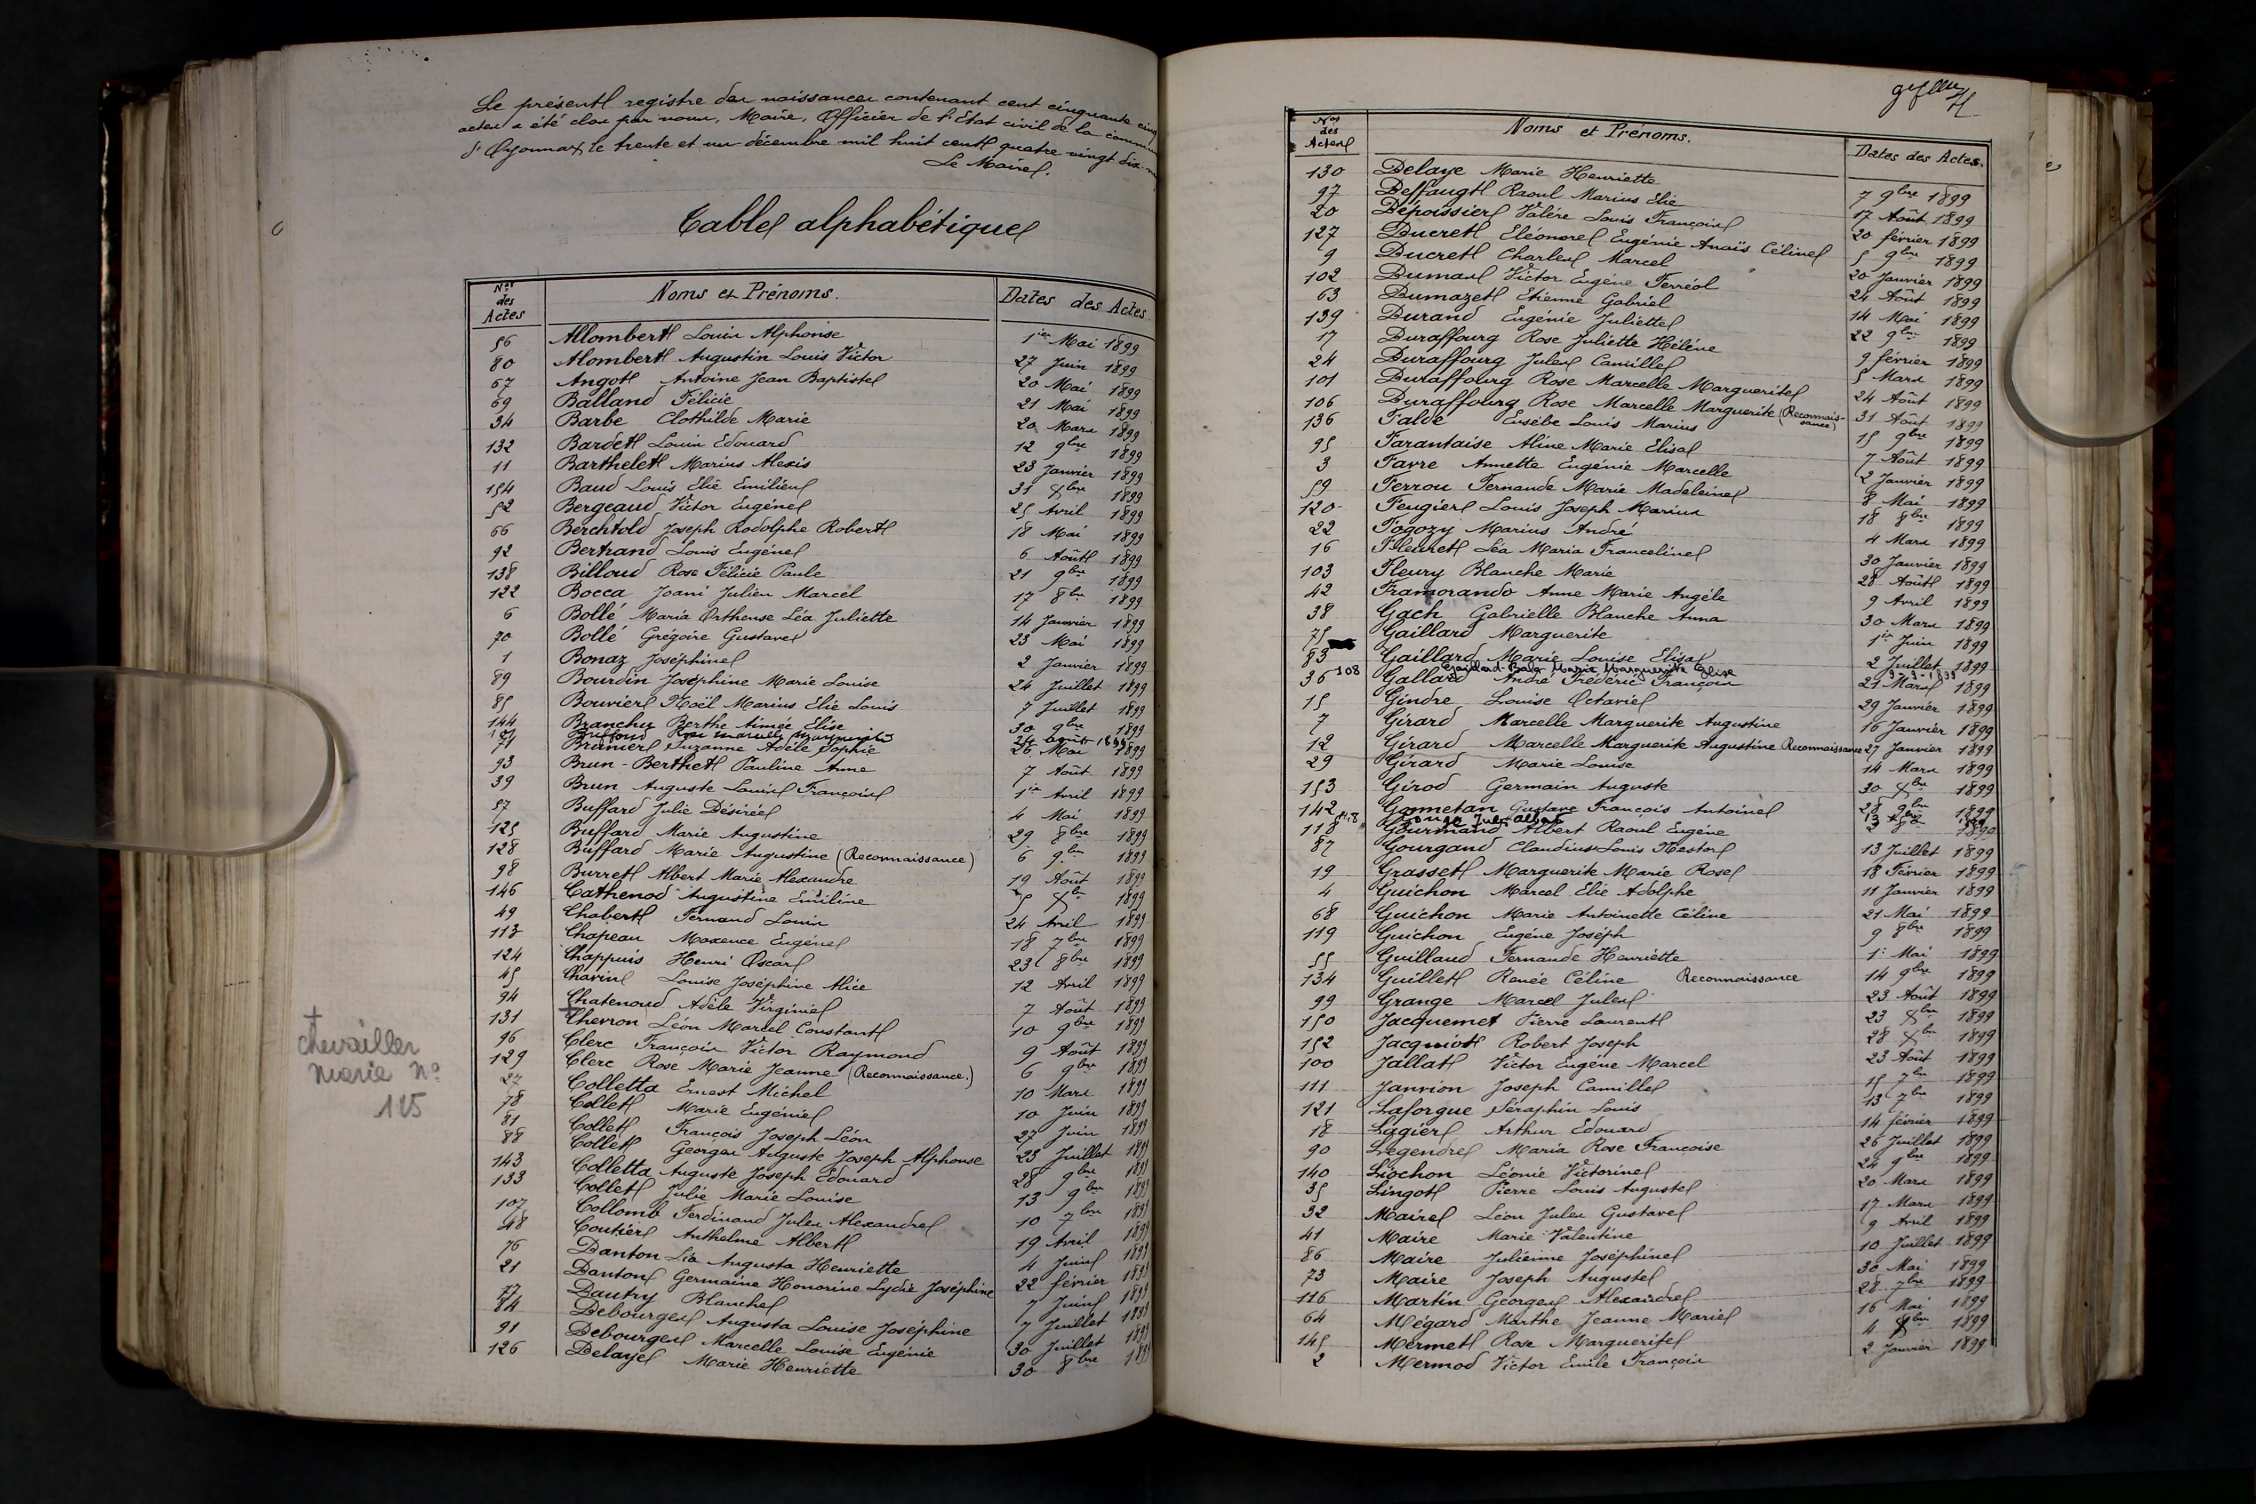 Le présent registre des naissances contenant cent cinquante cinq
actes a été clos par nous, Maire, Officier de l'Etat civil de la commune
d'Oyonnax, le trente et un décembre mil huit cent quatre vingt dix
Le Maire.
Table alphabétique
Nos des Actes Noms et Prénoms. Dates des Actes
56 Allombert Louis Alphonse 1ier Mai 1899
80 Alombert Augustin Louis Victor 27 Juin 1899
67 Angot Antoine Jean Baptiste 20 Mai 1899
69 Balland Félicie 21 Mai 1899
34 Barbe Clothilde Marie 20 Mars 1899
132 Bardet Louis Edouard 12 9bre 1899
11 Barthelet Marius Alexis 23 Janvier 1899
154 Baud Louis Elie Emilien 31 Xbre 1899
52 Bergeaud Victor Eugène 25 Avril 1899
66 Berchtold Joseph Rodolphe Robert 18 Mai 1899
92 Bertrand Louis Eugène 6 Août 1899
138 Billoud Rose Félicie Paule 21 9bre 1899
122 Bocca Joani Julien Marcel 17 8bre 1899
6 Bollé Maria Orthense Léa Juliette 14 Janvier 1899
70 Bollé Grégoire Gustave 23 Mai 1899
1 Bonaz Joséphine 2 Janvier 1899
89 Bourdin Joséphine Marie Louise 24 Juillet 1899
85 Bouvier Noël Marius Elie Louis 7 Juillet 1899
144 Branchy Berthe Aimée Elise 30 9bre 1899
Buffard Rose Marcelle Marguerite 24 août 1899
71 Branier Suzanne Adèle Sophie 26 Mai 1899
93 Brun-Berthet Pauline Anne 7 Août 1899
39 Brun Auguste Louis François 1ier Avril 1899
57 Buffard Julie Désirée 4 Mai 1899
125 Buffard Marie Augustine 29 8bre 1899
128 Buffard Marie Augustine (Reconnaissance) 6 9bre 1899
98 Burret Albert Marie Alexandre 19 Août 1899
146 Cathenod Augustine Emiline 5 Xbre 1899
49 Chabert Fernand Louis 24 Avril 1899
113 Chapeau Maxence Eugène 18 7bre 1899
124 Chappuis Henri Oscar 23 8bre 1899
45 Charin Louise Joséphine Alice 12 Avril 1899
94 Chatenoud Adèle Virginie 7 Août 1899
131 Chevron Léon Marcel Constant 10 9bre 1899
† chevailler
marie no
115
96 Clerc François Victor Raymond 9 Août 1899
129 Clerc Rose Marie Jeanne (Reconnaissance.) 6 9bre 1899
27 Colletta Ernest Michel 10 Mars 1899
78 Collet Marie Eugénie 10 Juin 1899
81 Collet François Joseph Léon 27 Juin 1899
88 Collet Georges Auguste Joseph Alphonse 23 Juillet 1899
143 Colletta Auguste Joseph Edouard 28 9bre 1899
133 Collet Julie Marie Louise 13 9bre 1899
107 Collomb Ferdinand Jules Alexandre 10 7bre 1899
48 Coutier Anthelme Albert 19 Avril 1899
76 Danton Léa Augusta Henriette 4 Juin 1899
21 Danton Germaine Honorine Lydie Joséphine 22 février 1899
77 Dautry Blanche 7 Juin 1899
84 Debourges Augusta Louise Joséphine 7 Juillet 1899
91 Debourges Marcelle Louise Eugénie 30 Juillet 1899
126 Delaye Marie Henriette 30 8bre 1899
Nos des Actes Noms et Prénoms. Dates des Actes.
130 Delaye Marie Henriette 7 9bre 1899
97 Deffaugt Raoul Marius Elie 17 Août 1899
20 Dépoissier Valère Louis François 20 février 1899
127 Ducret Eléonore Eugénie Anaïs Céline 5 9bre 1899
9 Ducret Charles Marcel 20 Janvier 1899
102 Dumas Victor Eugène Ferréol 24 Août 1899
63 Dumazet Etienne Gabriel 14 Mai 1899
139 Durand Eugénie Juliette 22 9bre 1899
17 Duraffourg Rose Juliette Hélène 9 février 1899
24 Duraffourg Jules Camille 5 Mars 1899
101 Duraffourg Rose Marcelle Marguerite 24 Août 1899
106 Duraffourg Rose Marcelle Marguerite (Reconnaissance) 31 Août 1899
136 Faldé Eusèbe Louis Marius 15 9bre 1899
95 Farantaise Aline Marie Elisa 7 Août 1899
3 Favre Annette Eugénie Marcelle 2 Janvier 1899
59 Ferrou Fernande Marie Madeleine 8 Mai 1899
120 Feugier Louis Joseph Marius 18 8bre 1899
22 Fogozy Marius André 4 Mars 1899
16 Fleuret Léa Maria Franceline 30 Janvier 1899
103 Fleury Blanche Marie 28 Août 1899
42 Framorando Anne Marie Angèle 9 Avril 1899
38 Gach Gabrielle Blanche Anna 30 Mars 1899
75 Gaillard Marguerite 1er Juin 1899
83 Gaillard Marie Louise Elisa 2 Juillet 1899
108 Gaillard-Balp Marie Marguerite Elise 9-9-1899
36 Gallard André Frédéric François 21 Mars 1899
15 Gindre Louise Octavie 29 Janvier 1899
7 Girard Marcelle Marguerite Augustine 16 Janvier 1899
12 Girard Marcelle Marguerite Augustine Reconnaissance 27 Janvier 1899
29 Girard Marie Louise 14 Mars 1899
153 Girod Germain Auguste 30 Xbre 1899
142 Gormetan Gustave François Antoine 28 9bre 1899
148 Gouge Jules Albert
118 Gourmand Albert Raoul Eugène
87 Gourgand Claudius Louis Nestor 13 Juillet 1899
19 Grasset Marguerite Marie Rose 18 Février 1899
4 Guichon Marcel Elie Adolphe 11 Janvier 1899
68 Guichon Marie Antoinette Céline 21 Mai 1899
119 Guichon Eugène Joséph 9 8bre 1899
55 Guilland Fernande Henriette 1er Mai 1899
134 Guillet Renée Céline Reconnaissance 14 9bre 1899
99 Grange Marcel Jules 23 Août 1899
150 Jacquemet Pierre Laurent 23 Xbre 1899
152 Jacquiot Robert Joseph 28 Xbre 1899
100 Jallat Victor Eugène Marcel 23 Août 1899
111 Janvion Joseph Camille 15 7bre 1899
121 Laforgue Séraphin Louis 13 7bre 1899
18 Lagier Arthur Edouard 14 février 1899
90 Legendre Maria Rose Françoise 26 Juillet 1899
140 Liochon Léonie Victorine 24 9bre 1899
35 Lingot Pierre Louis Auguste 20 Mars 1899
32 Maire Léon Jules Gustave 17 Mars 1899
41 Maire Marie Valentine 9 Avril 1899
86 Maire Julienne Joséphine 10 Juillet 1899
73 Maire Joseph Auguste 30 Mai 1899
116 Martin Georges Alexandre 28 7bre 1899
64 Mégard Marthe Jeanne Marie 16 Mai 1899
145 Mermet Rose Marguerite 4 Xbre 1899
2 Mermod Victor Emile François 2 Janvier 1899